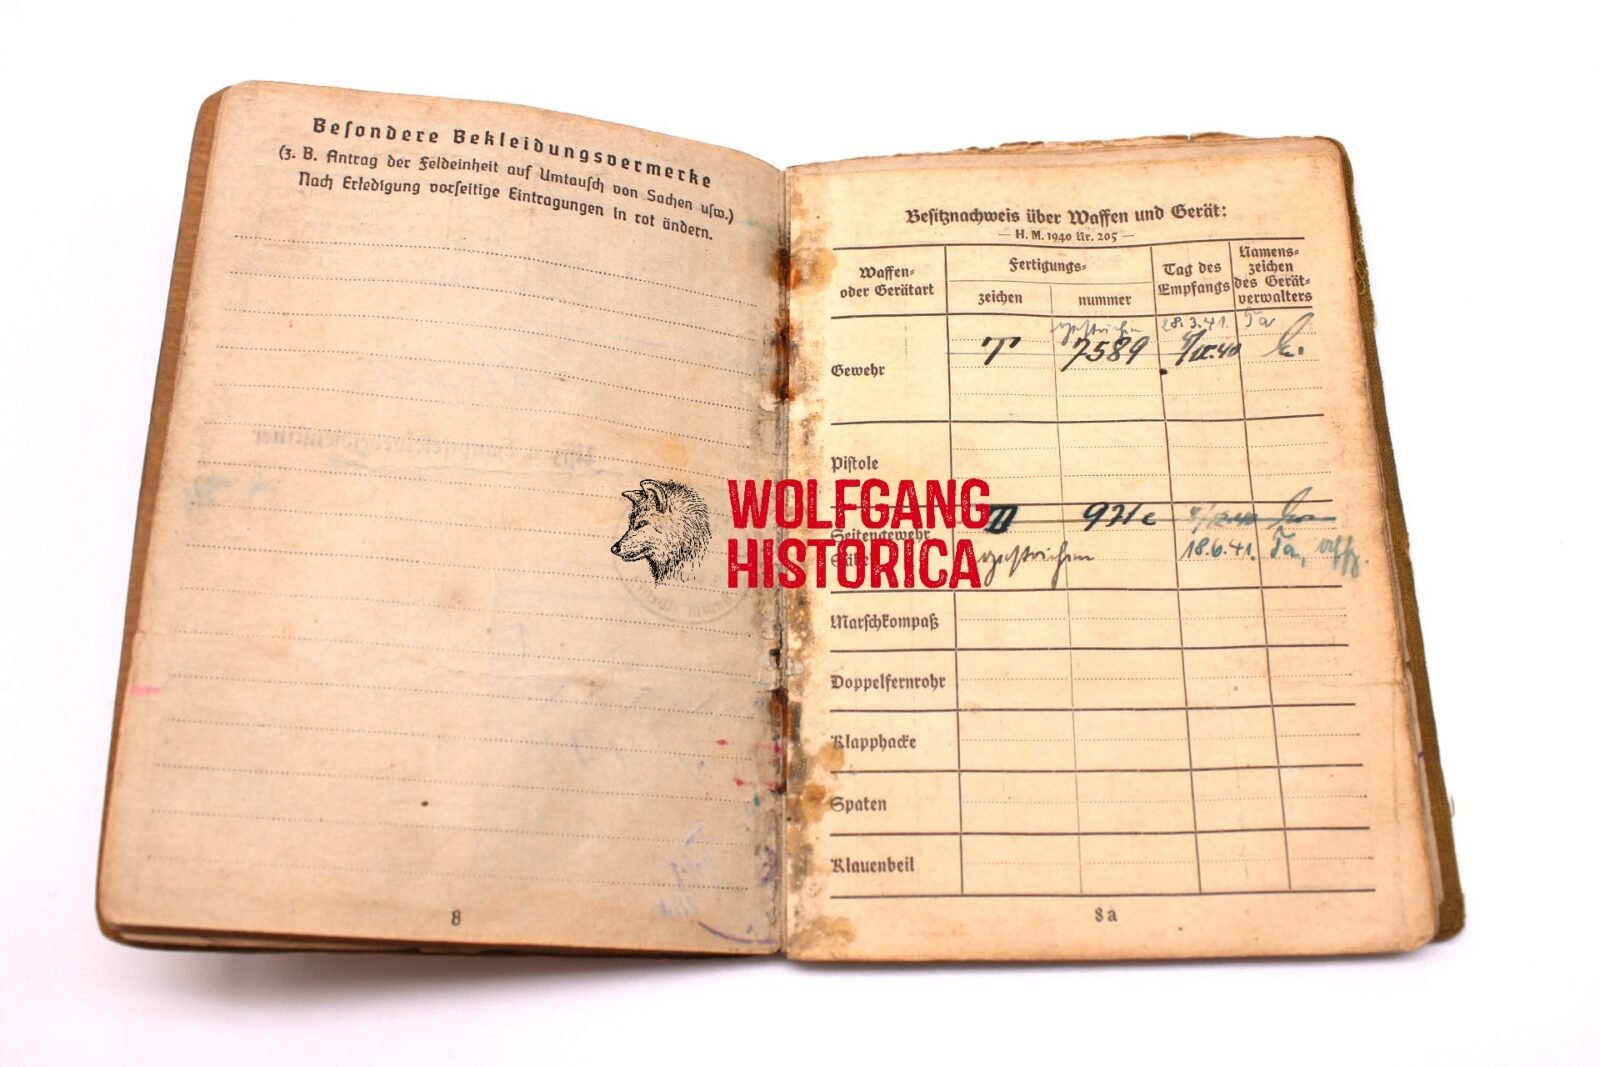 Besondere Bekleidungsvermerke
(z. B. Antrag der Feldeinheit auf Umtausch von Sachen usw.)
Nach Erledigung vorseitige Eintragungen in rot ändern.
8
Besitznachweis über Waffen und Gerät:
— H. M. 1940 Nr. 205 —
Waffen- oder Gerätart
Fertigungs-
zeichen
nummer
Tag des Empfangs
Namens-zeichen des Gerät-verwalters
gestrichen 28.3.41. Ta
Gewehr
T 7589
Pistole
Seitengewehr
921c
gestrichen 18.6.41. Ta,
Marschkompaß
Doppelfernrohr
Klapphacke
Spaten
Klauenbeil
8a
WOLFGANG
HISTORICA